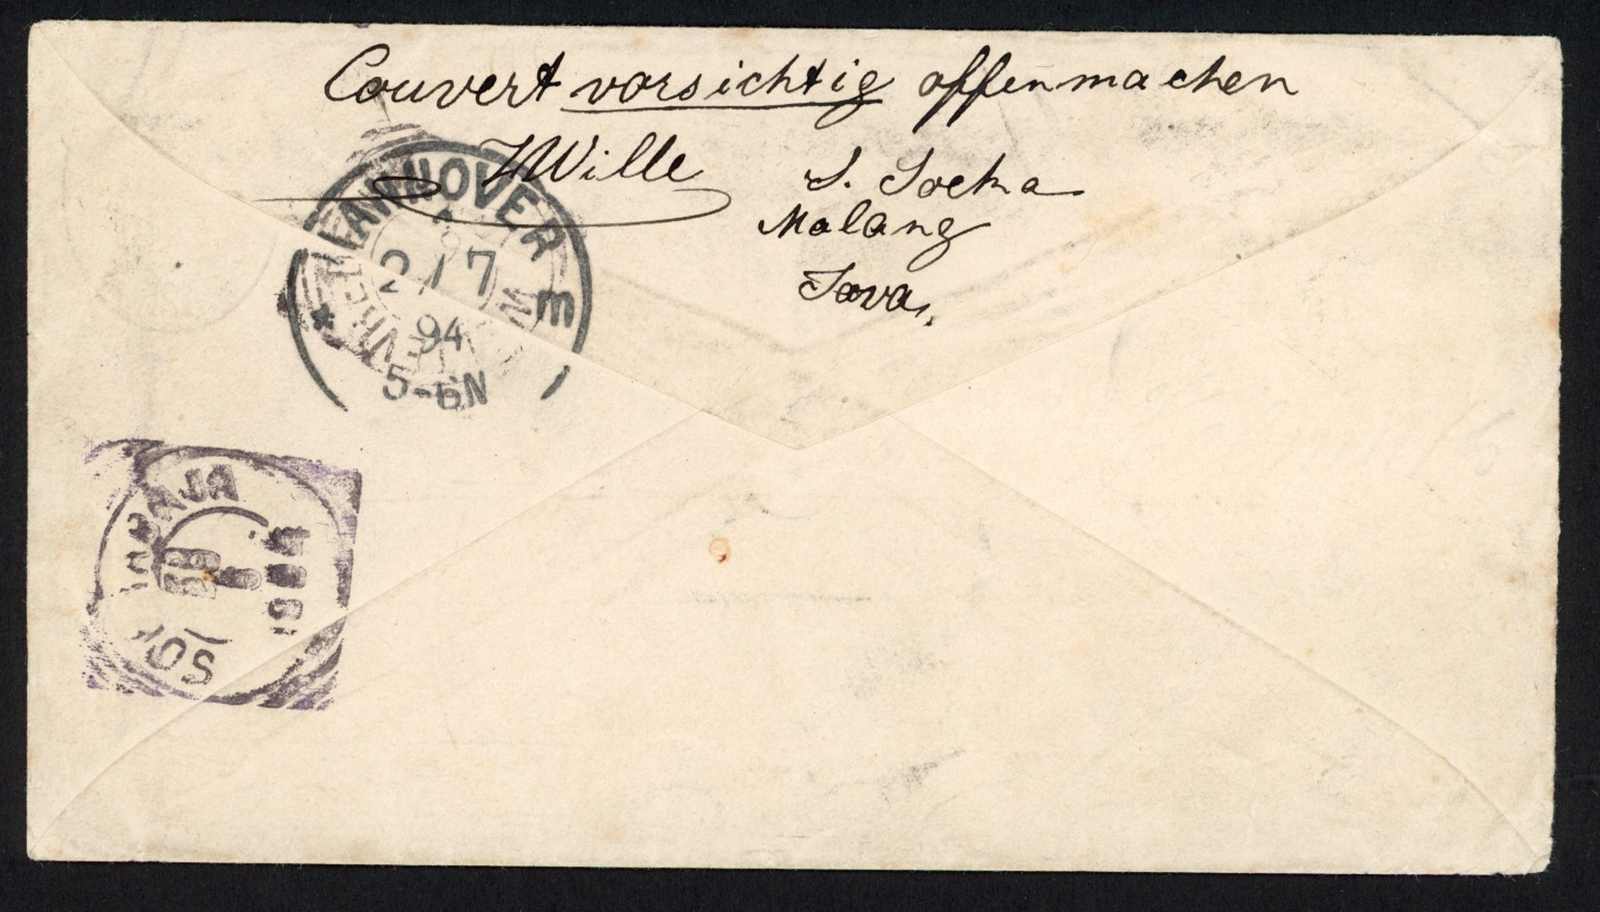 Couvert vorsichtig offenmachen
Wille
S. Soeka
Malang
Java.
HANNOVER
2/7
94
5-6N
* E
SOERABAJA
1894